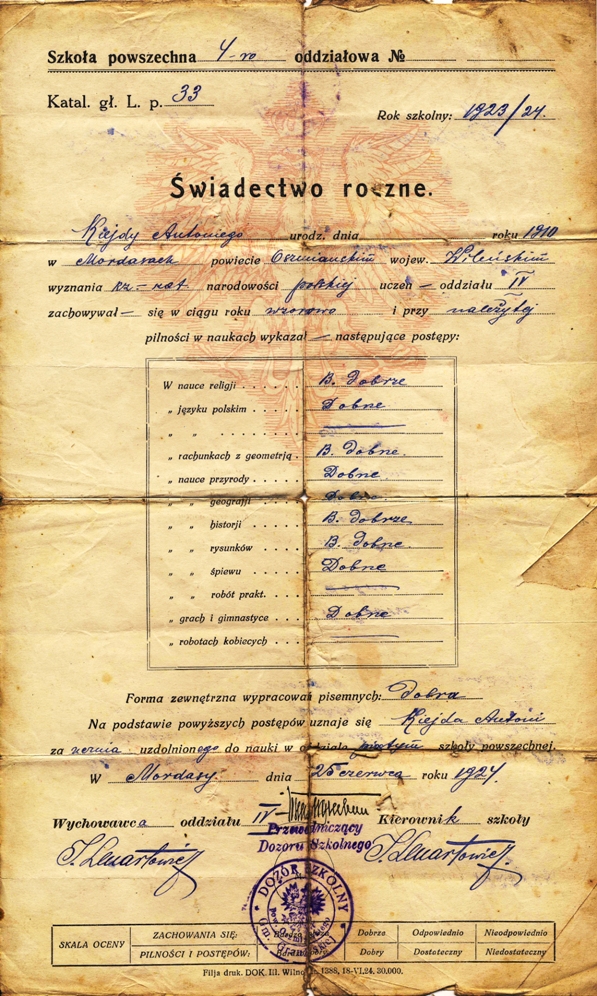 Szkoła powszechna 4-ro oddziałowa №
Katal. gł. L. p. 33
Rok szkolny: 1923/24.
Świadectwo roczne.
Kiejdy Antoniego urodz. dnia roku 1910
w Mordasach powiecie Oszmiańskim wojew. Wileńskim
wyznania rz-kat narodowości polskiej uczeń — oddziału IV
zachowywał — się w ciągu roku wzorowo i przy należytej
pilności w naukach wykazał — następujące postępy:
W nauce religji . . . . . . B. dobrze
„ języku polskim . . . . . Dobrze
„ „ . . . . . .
„ rachunkach z geometrją . B. dobrze.
„ nauce przyrody . . . . . Dobrze
„ „ geografji . . . . Dobrze
„ „ historji . . . . B. dobrze
„ „ rysunków . . . . B. dobrze.
„ „ śpiewu . . . . Dobrze
„ „ robót prakt. . . .
„ grach i gimnastyce . . . . Dobrze
„ robotach kobiecych . . . .
Forma zewnętrzna wypracowań pisemnych: Dobra
Na podstawie powyższych postępów uznaje się Kiejda Antoni
za ucznia uzdolnionego do nauki w oddziale piątym szkoły powszechnej.
W Mordasy dnia 25 czerwca roku 1924
Wychowawca oddziału IV Kierownik szkoły
Przewodniczący
Dozoru Szkolnego
DOZÓR SZKOLNY
SKALA OCENY
ZACHOWANIA SIĘ: Dobrze Odpowiednio Nieodpowiednio
PILNOŚCI I POSTĘPÓW: Dobry Dostateczny Niedostateczny
Filja druk. DOK. III. Wilno 1388, 18-VI,24, 30.000.